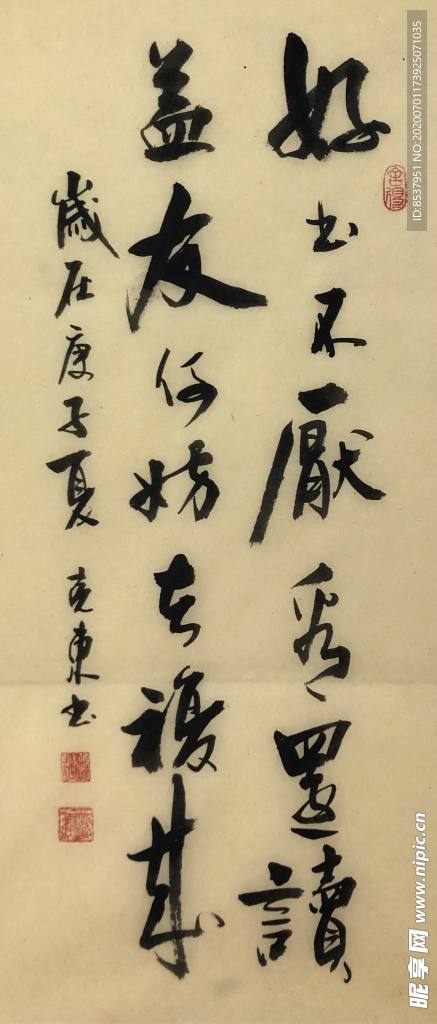 好書不厭看還讀
益友何妨去複來
歲在庚子夏 克東書
ID:8537951 NO:20200701173925071035
昵享网 www.nipic.cn